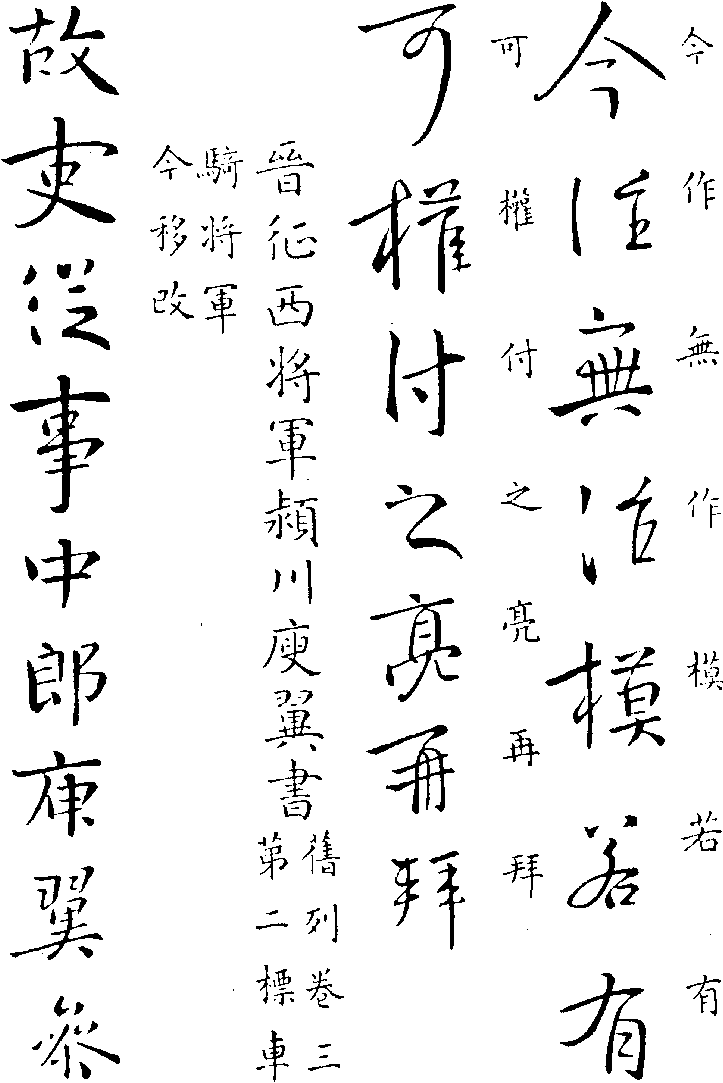 今作無作模若有
今作無作模若有
可權付之亮再拜
可權付之亮再拜
晉征西將軍潁川庾翼書
舊列卷三
第二標車
騎將軍
今移改
故吏從事中郎庾翼參